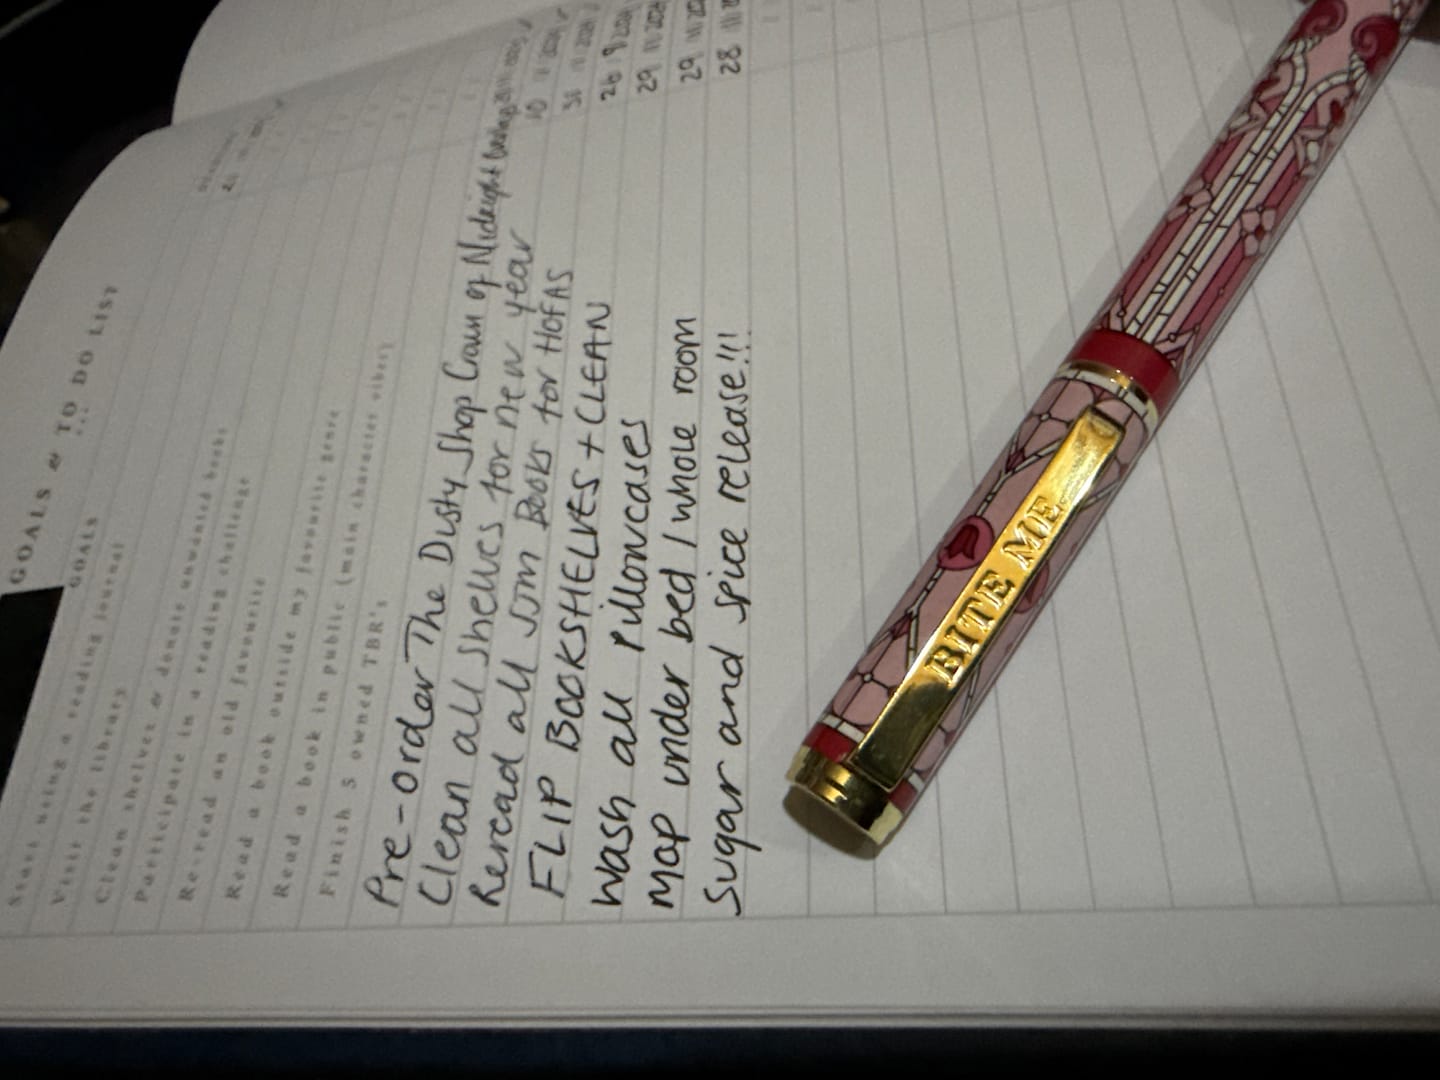 GOALS & TO DO LIST
GOALS
Start using a reading journal
Visit the library
Clean shelves & donate unwanted books
Participate in a reading challenge
Re-read an old favourite
Read a book outside my favourite genre
Read a book in public (main character vibes)
Finish 5 owned TBR's
Pre-order The Dusty Shop Crown of Midnight
Clean all shelves for new year 10
Reread all SJM Books for HOFAS 31
FLIP BOOKSHELVES + CLEAN 26 9
Wash all Pillowcases 29 11
Mop under bed / whole room 29 11
Sugar and spice release!!! 28 11
BITE ME